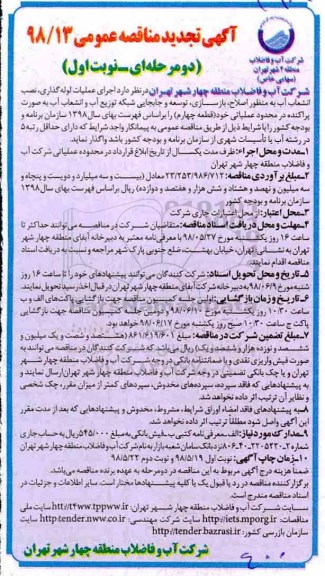 آگهی تجدید مناقصه عمومی ۹۸/۱۳
(دو مرحله‌ای-نوبت اول)
شرکت آب و فاضلاب
منطقه ۴ شهر تهران
(سهامی خاص)
شرکت آب و فاضلاب منطقه چهار شهر تهران در نظر دارد اجرای عملیات لوله گذاری، نصب
انشعاب آب به منظور اصلاح، بازسازی، توسعه و جابجایی شبکه توزیع آب و انشعاب آب به صورت
پراکنده در محدوده عملیاتی خود (قطعه چهارم) را براساس فهرست بهای سال ۱۳۹۸ سازمان برنامه و
بودجه کشور را با شرایط ذیل از طریق مناقصه عمومی به پیمانکار واجد شرایط که دارای حداقل رتبه ۵
در رشته آب یا تأسیسات شهری از سازمان برنامه و بودجه کشور باشد واگذار نماید.
۱-مدت و محل اجرا: ظرف مدت یکسال از تاریخ ابلاغ قرارداد در محدوده عملیاتی شرکت آب
و فاضلاب منطقه چهار شهر تهران
۲-مبلغ برآوردی مناقصه: ۲۳/۲۵۳/۹۸۶/۷۱۲ معادل (بیست و سه میلیارد و دویست و پنجاه و
سه میلیون و نهصد و هشتاد و شش هزار و هفتصد و دوازده) ریال براساس فهرست بهای سال ۱۳۹۸
سازمان برنامه و بودجه کشور
۳-محل اعتبار: از محل اعتبارات جاری شرکت
۴-مهلت و محل دریافت اسناد مناقصه: متقاضیان شرکت در مناقصه می‌توانند حداکثر تا
ساعت ۱۶ روز یکشنبه مورخ ۹۸/۰۵/۲۷ با معرفی‌نامه معتبر به دبیرخانه آبفای منطقه چهار شهر
تهران به نشانی تهران، خیابان بهشت، ضلع جنوبی پارک شهر مراجعه و نسبت به دریافت اسناد
مناقصه اقدام نمایند.
۵-تاریخ و محل تحویل اسناد: شرکت کنندگان می‌توانند پیشنهادهای خود را تا ساعت ۱۶ روز
شنبه مورخ ۹۸/۰۶/۰۹ به دبیرخانه شرکت آبفای منطقه چهار شهر تهران در قبال اخذ رسید تحویل نمایند.
۶-تاریخ و زمان بازگشایی: اولین جلسه کمیسیون مناقصه جهت بازگشایی پاکت‌های الف و ب
ساعت ۱۰:۳۰ روز یکشنبه مورخ ۹۸/۰۶/۱۰ و دومین جلسه کمیسیون مناقصه جهت بازگشایی
پاکت ج ساعت ۱۰:۳۰ صبح روز یکشنبه مورخ ۹۸/۰۶/۱۷ خواهد بود.
۷-مبلغ تضمین شرکت در مناقصه: مبلغ ۸۶۱/۶۱۹/۶۰۱ (هشتصد و شصت و یک میلیون و
ششصد و نوزده هزار و ششصد و یک) ریال می‌باشد که شرکت کنندگان در مناقصه می‌توانند به
صورت فیش واریزی نقدی و یا ضمانتنامه بانکی در وجه شرکت آب و فاضلاب منطقه چهار شهر
تهران و یا چک بانکی تضمینی در وجه شرکت آب و فاضلاب منطقه چهار شهر تهران ارسال نمایند و
به پیشنهادهایی که فاقد سپرده، سپرده‌های مخدوش، سپرده‌های کمتر از میزان مقرر، چک شخصی
و نظایر آن ترتیب اثر داده نخواهد شد.
۸-به پیشنهادهای فاقد امضاء اوراق شرایط، مشروط، مخدوش و پیشنهادهایی که بعد از مدت مقرر
این آگهی واصل شود مطلقاً ترتیب اثر داده نخواهد شد.
۱۰-زمان چاپ آگهی: نوبت اول ۹۸/۵/۱۹ و نوبت دوم ۹۸/۵/۲۲
ضمناً هزینه درج آگهی مربوط به این مناقصه در دو مرحله به عهده برنده مناقصه می‌باشد.
برگزار کننده مناقصه در رد یا قبول یک یا کلیه پیشنهادها مختار است. سایر اطلاعات و جزئیات در
اسناد مناقصه مندرج است.
شرکت آب و فاضلاب منطقه چهار شهر تهران